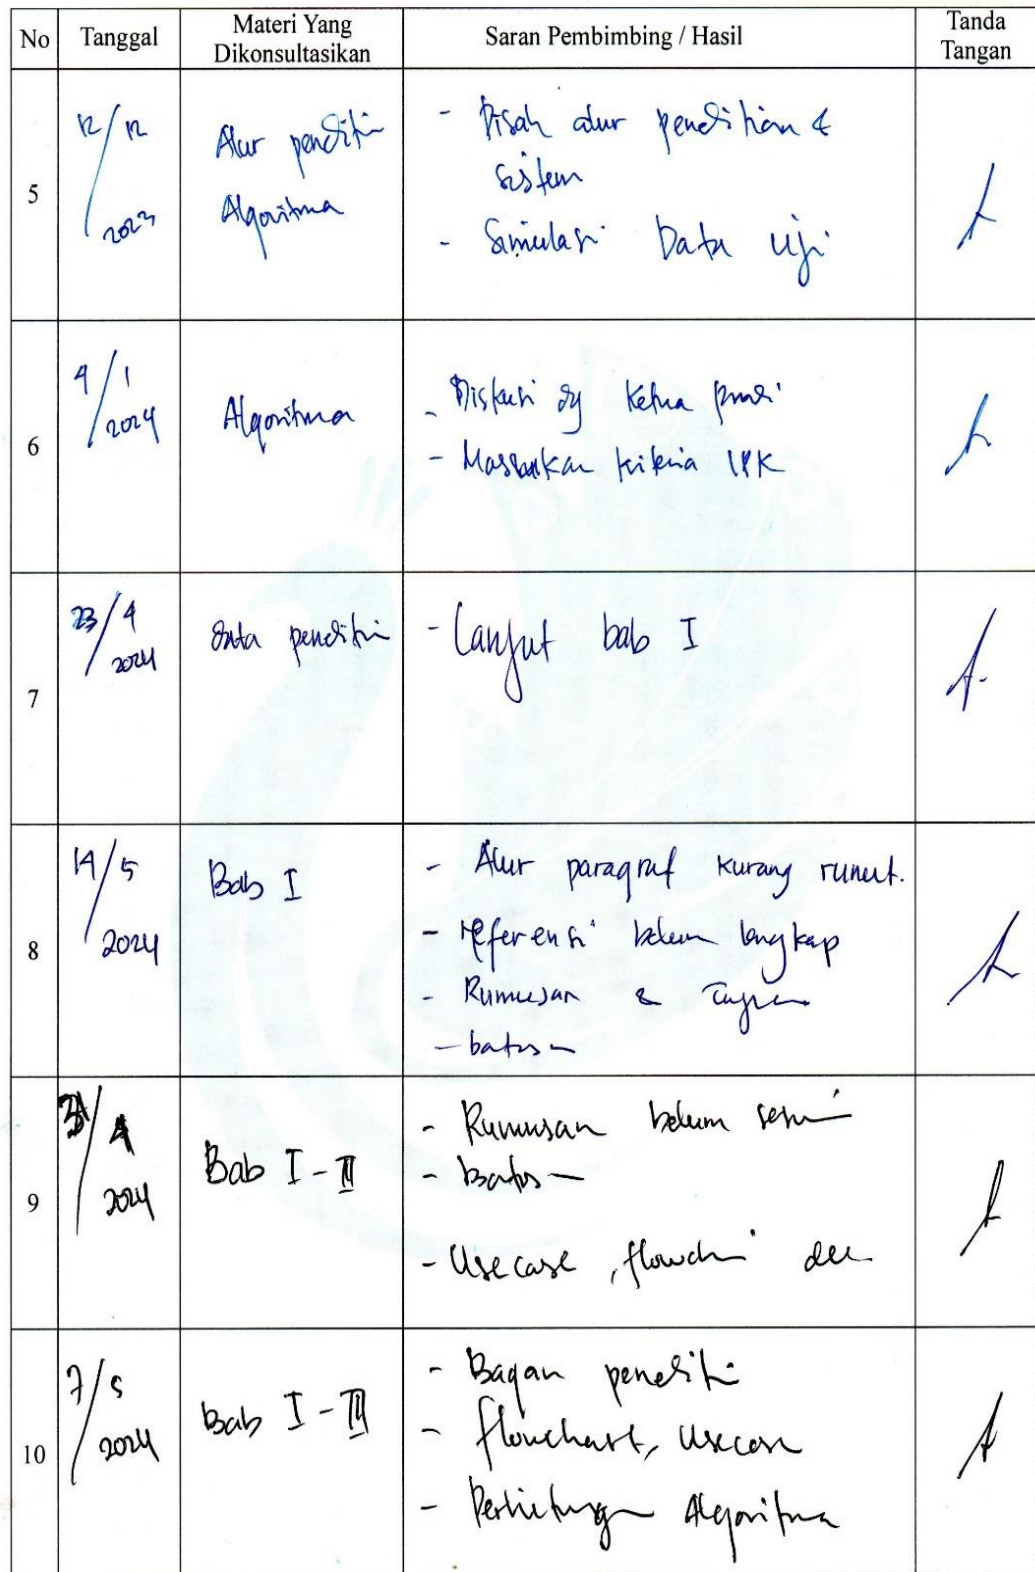 No Tanggal Materi Yang Dikonsultasikan Saran Pembimbing / Hasil Tanda Tangan
5
12/12
2023
Alur peneliti
Algoritma
- Pisah alur penelitian &
sistem
- Simulasi Data uji
6
4/1
2024
Algoritma
- Diskusi dg ketua prodi
- Masukkan kriteria IPK
7
23/4
2024
Data peneliti
- Lanjut bab I
8
14/5
2024
Bab I
- Alur paragraf kurang runut.
- referensi belum lengkap
- Rumusan & Tujuan
- batasan
9
2024
Bab I - III
- Rumusan belum sesuai
- Batasan
- Usecase, flowchart
10
7/5
2024
Bab I - III
- Bagan peneliti
- flowchart, Usecase
- Perhitungan Algoritma